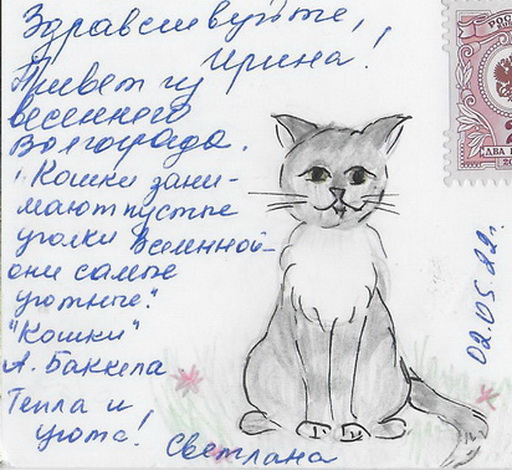 Здравствуйте,
Ирина!
Привет из
весеннего
Волгограда.
"Кошки зани-
мают пустые
уголки Вселенной -
они самые
уютные."
"Кошки"
А. Баккела
Тепла и
уюта!
Светлана
02.05.22г.
РОС
ДВА